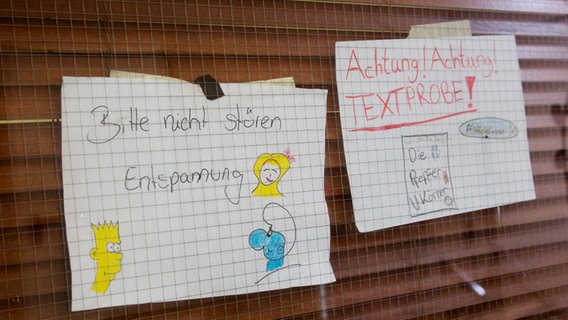 Bitte nicht stören
Entspannung
Achtung! Achtung!
TEXTPROBE!
Die